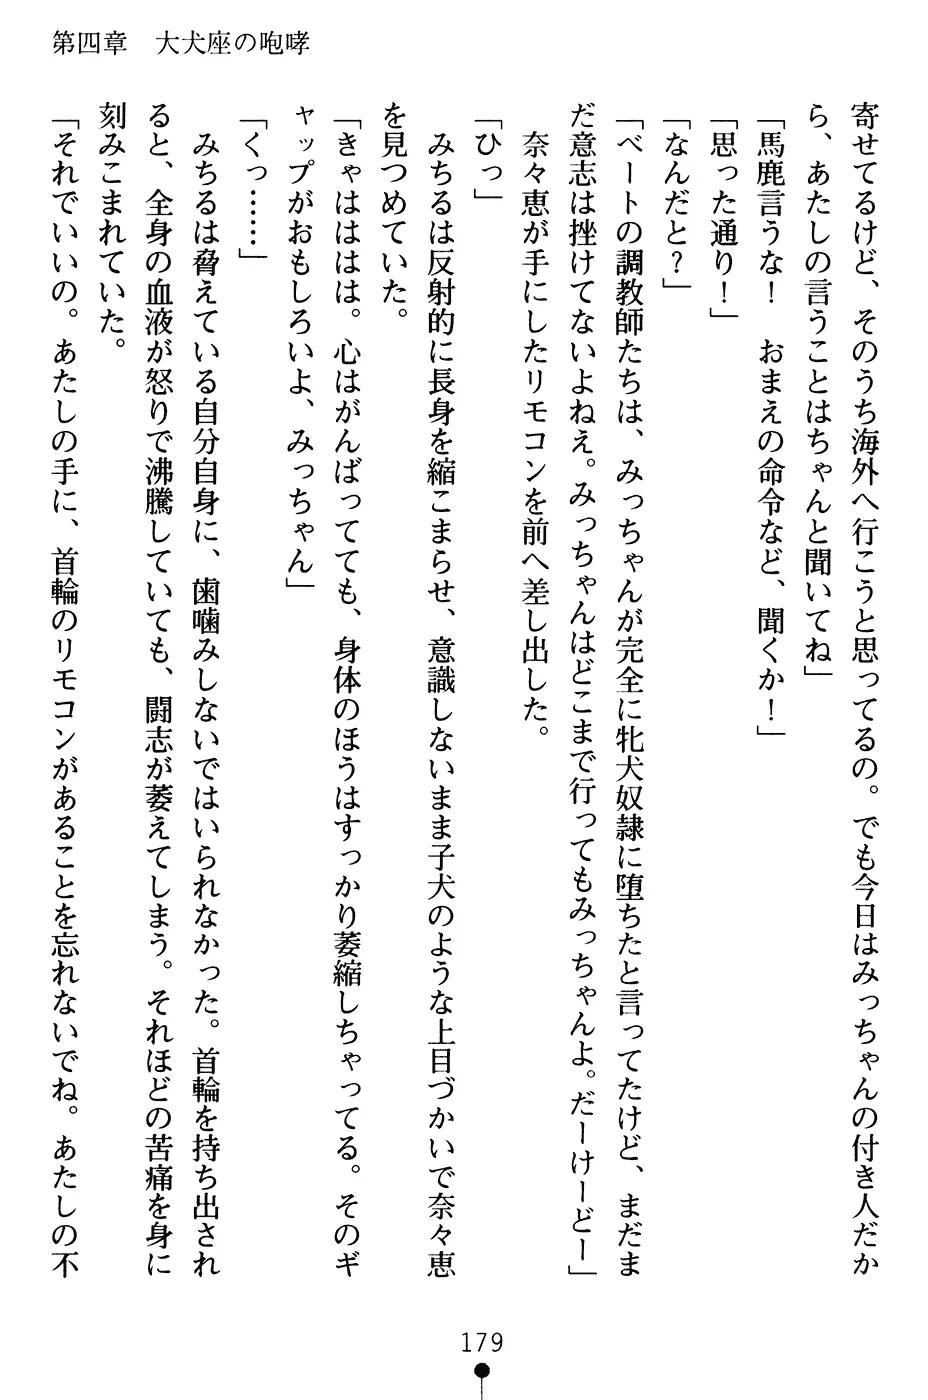 第四章　大犬座の咆哮
寄せてるけど、そのうち海外へ行こうと思ってるの。でも今日はみっちゃんの付き人だか
ら、あたしの言うことはちゃんと聞いてね」
「馬鹿言うな！　おまえの命令など、聞くか！」
「思った通り！」
「なんだと？」
「ベートの調教師たちは、みっちゃんが完全に牝犬奴隷に堕ちたと言ってたけど、まだま
だ意志は挫けてないよねえ。みっちゃんはどこまで行ってもみっちゃんよ。だーけーどー」
　奈々恵が手にしたリモコンを前へ差し出した。
「ひっ」
　みちるは反射的に長身を縮こまらせ、意識しないまま子犬のような上目づかいで奈々恵
を見つめていた。
「きゃはははは。心はがんばってても、身体のほうはすっかり萎縮しちゃってる。そのギ
ャップがおもしろいよ、みっちゃん」
「くっ……」
　みちるは脅えている自分自身に、歯噛みしないではいられなかった。首輪を持ち出され
ると、全身の血液が怒りで沸騰していても、闘志が萎えてしまう。それほどの苦痛を身に
刻みこまれていた。
「それでいいの。あたしの手に、首輪のリモコンがあることを忘れないでね。あたしの不
179